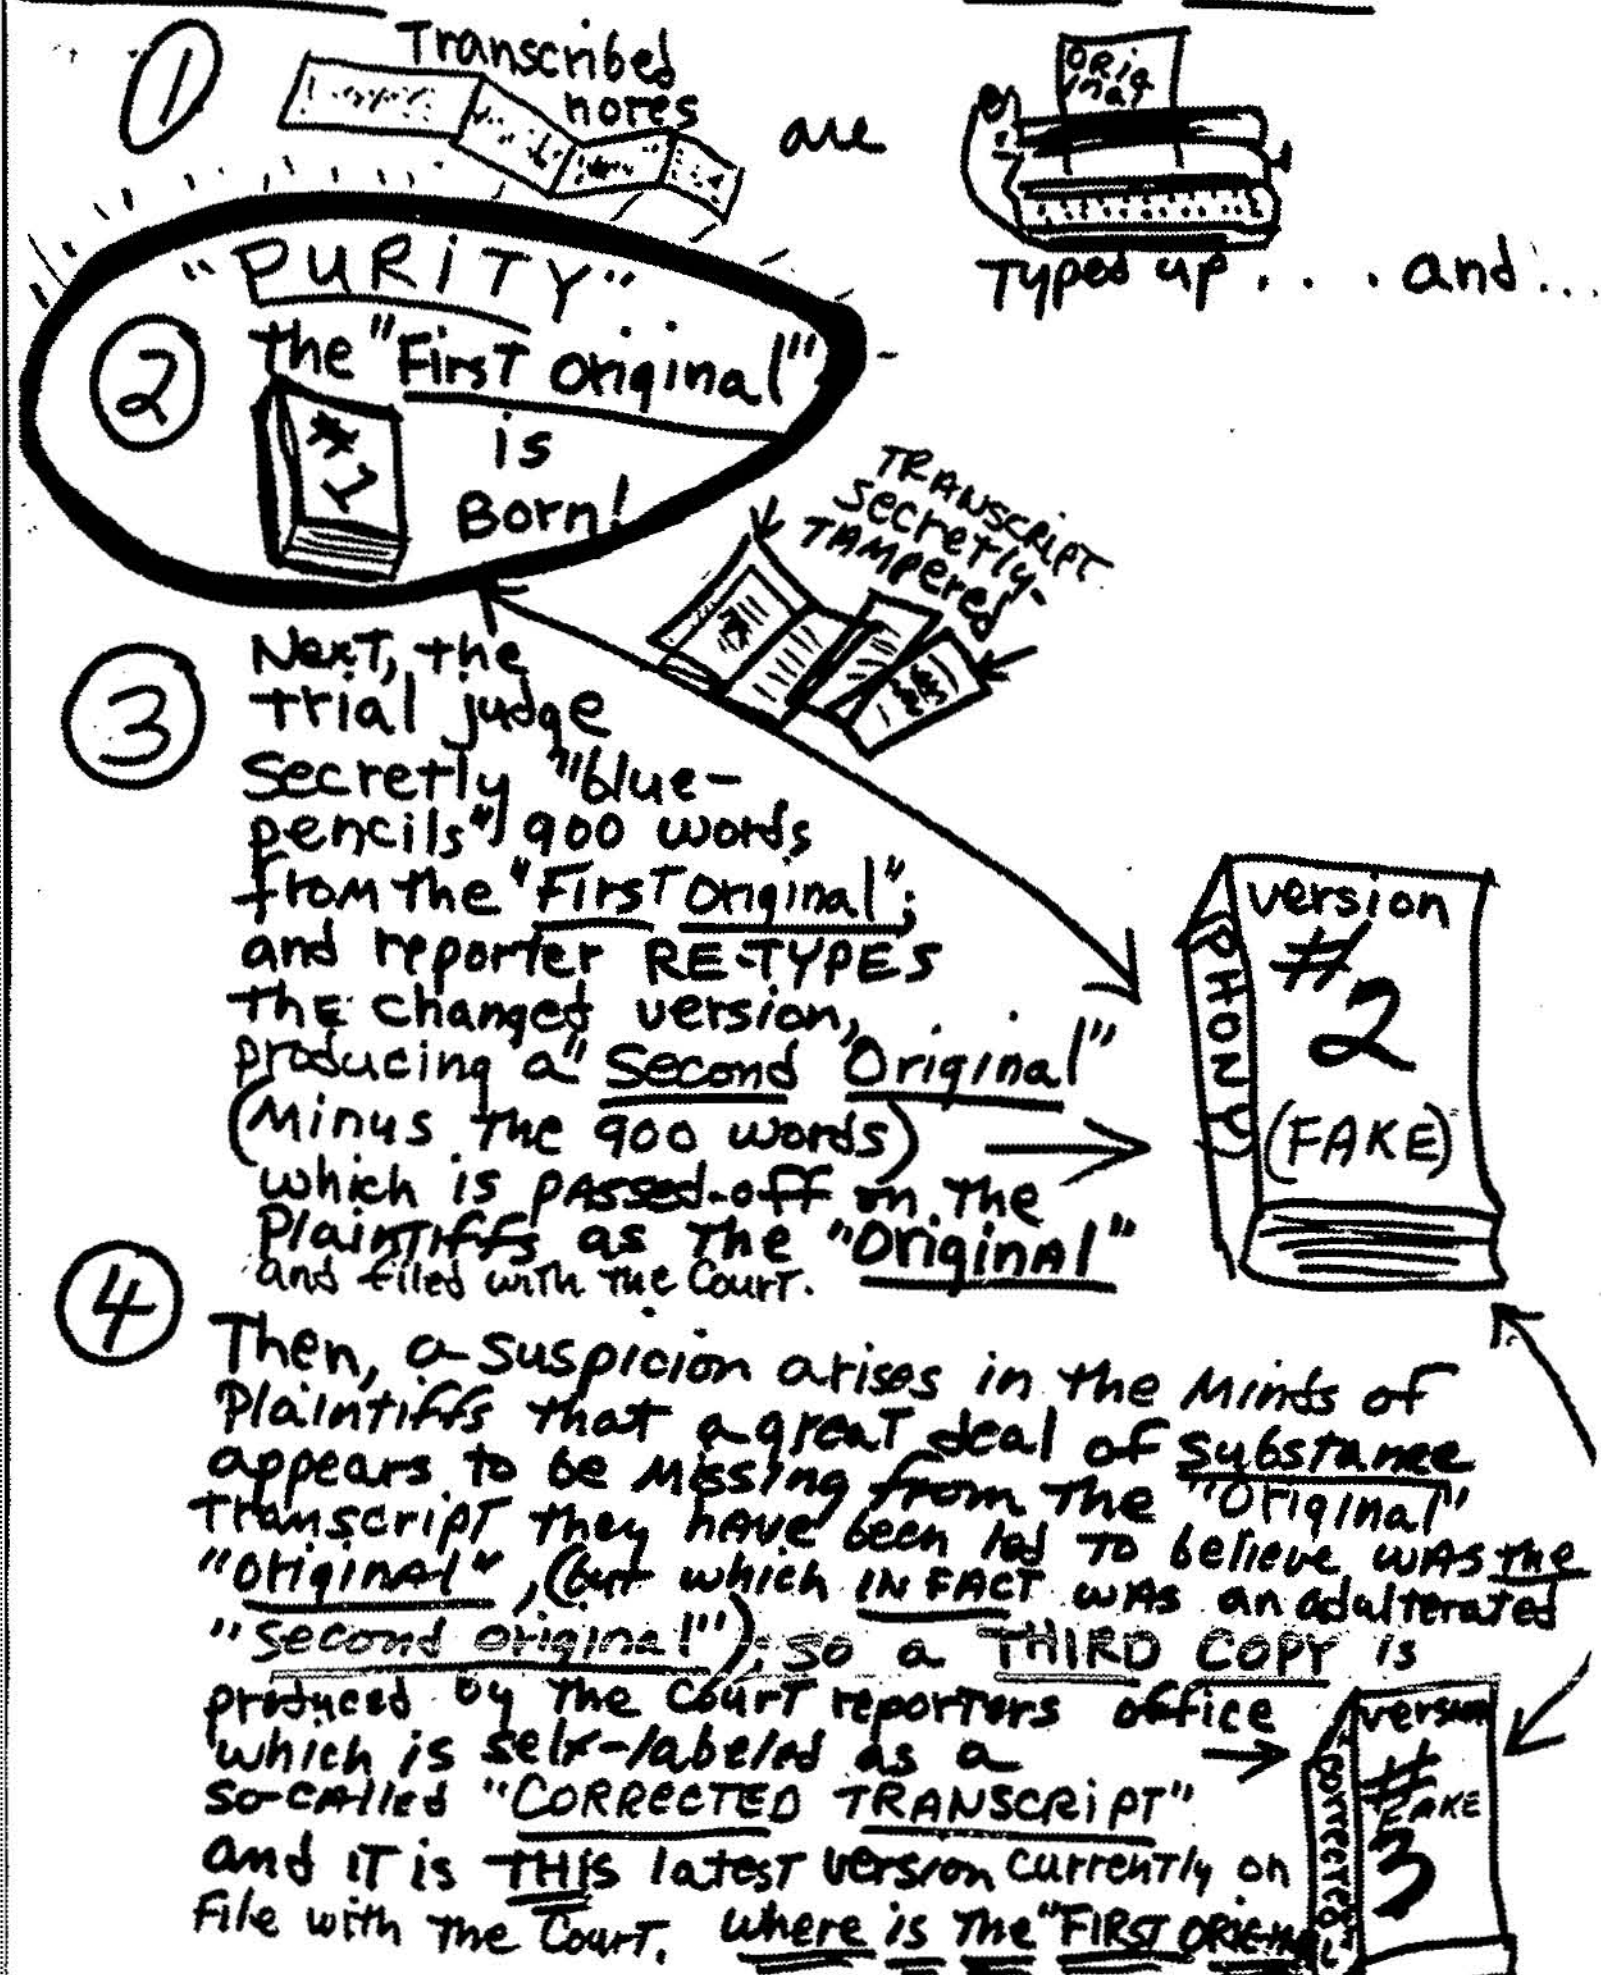 1
Transcribed
notes
are
ORIG
INAL
Typed up . . . and . . .
"PURITY"
2
the "First Original"
#1
is
Born!
TRANSCRIPT
Secretly-
TAMPered
3
Next, the
trial judge
Secretly "blue-
pencils" 900 words
from the "First Original";
and reporter RE-TYPES
THE changed version,
producing a "Second "Original"
(Minus the 900 words)
which is PAssed-off on the
Plaintiffs as the "Original"
and filed with the Court.
version
#2
(FAKE)
PHONY
4
Then, a suspicion arises in the Minds of
Plaintiffs that a great deal of Substance
appears to be Missing from the "Original"
Transcript they have been led to believe was the
"Original", (but which IN FACT was an adulterated
"Second original"); so a THIRD COPY is
produced by the Court reporters office
which is self-labeled as a
so-called "CORRECTED TRANSCRIPT"
and it is THIS latest version currently on
File with the Court. Where is the "FIRST ORIGINAL"
version
#3
FAKE
"Corrected"